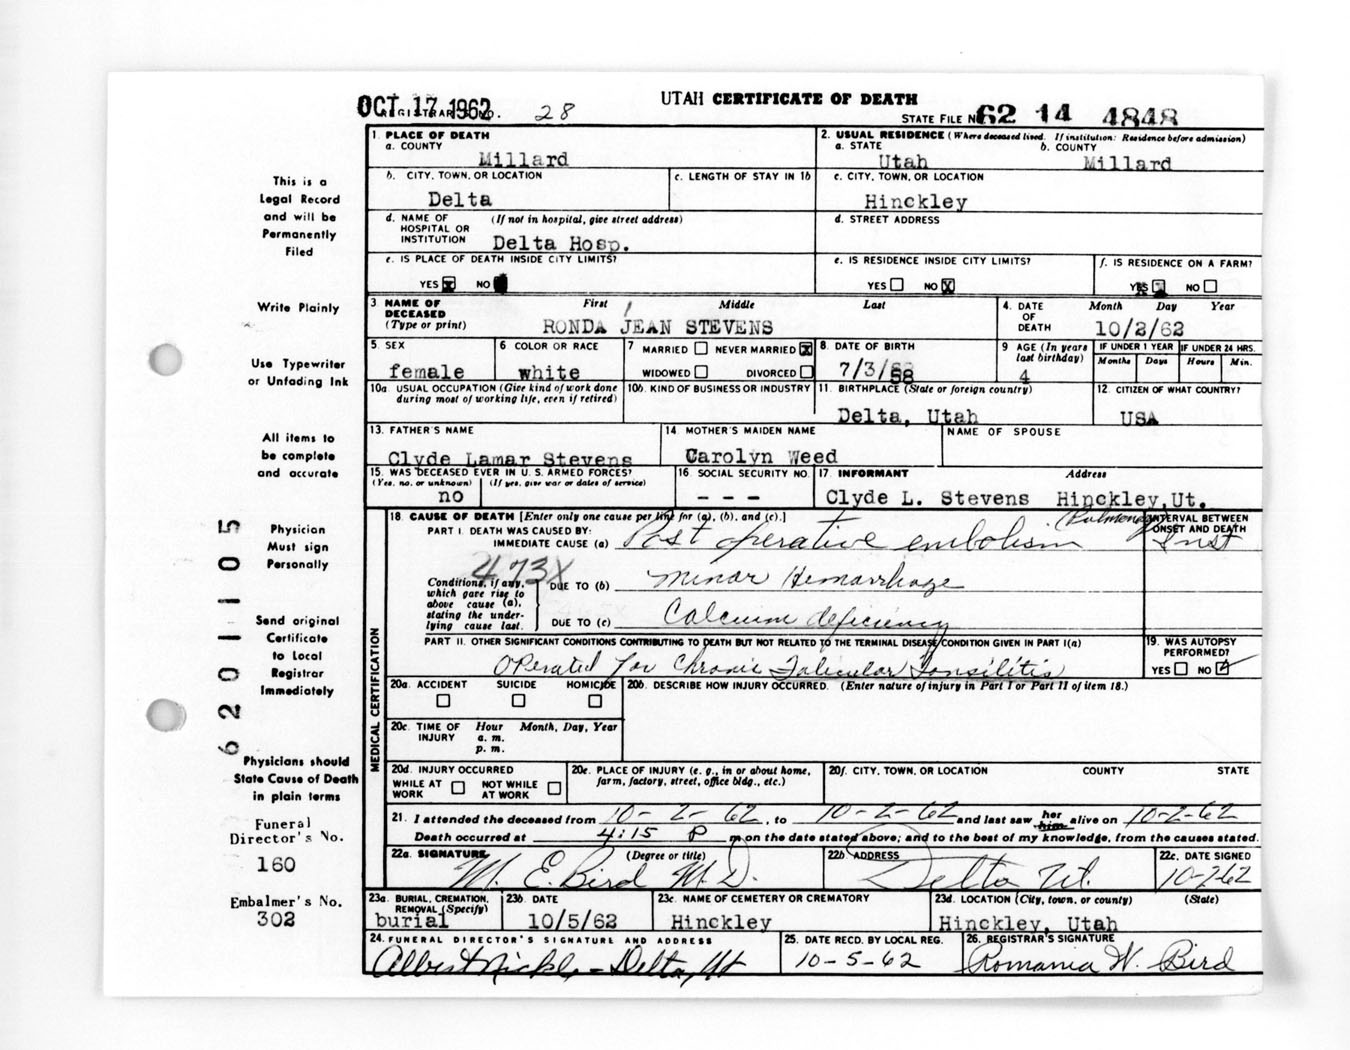 OCT 17 1962
REGISTRAR'S NO. 28
UTAH CERTIFICATE OF DEATH
STATE FILE NO. 62 14 4848
This is a
Legal Record
and will be
Permanently
Filed
Write Plainly
Use Typewriter
or Unfading Ink
All items to
be complete
and accurate
Physician
Must sign
Personally
Send original
Certificate
to Local
Registrar
Immediately
Physicians should
State Cause of Death
in plain terms
Funeral
Director's No.
160
Embalmer's No.
302
6201105
1. PLACE OF DEATH
a. COUNTY
Millard
2. USUAL RESIDENCE (Where deceased lived. If institution: Residence before admission)
a. STATE b. COUNTY
Utah Millard
b. CITY, TOWN, OR LOCATION
Delta
c. LENGTH OF STAY IN 1b
c. CITY, TOWN, OR LOCATION
Hinckley
d. NAME OF HOSPITAL OR INSTITUTION (If not in hospital, give street address)
Delta Hosp.
d. STREET ADDRESS
e. IS PLACE OF DEATH INSIDE CITY LIMITS?
YES X NO
e. IS RESIDENCE INSIDE CITY LIMITS?
YES NO X
f. IS RESIDENCE ON A FARM?
YES X NO
3 NAME OF DECEASED (Type or print) First Middle Last
RONDA JEAN STEVENS
4. DATE OF DEATH Month Day Year
10/2/62
5. SEX
female
6 COLOR OR RACE
white
7 MARRIED NEVER MARRIED X
WIDOWED DIVORCED
8. DATE OF BIRTH
7/3/58
9 AGE (In years last birthday)
4
IF UNDER 1 YEAR IF UNDER 24 HRS.
Months Days Hours Min.
10a. USUAL OCCUPATION (Give kind of work done during most of working life, even if retired)
10b. KIND OF BUSINESS OR INDUSTRY
11. BIRTHPLACE (State or foreign country)
Delta, Utah
12 CITIZEN OF WHAT COUNTRY?
USA
13. FATHER'S NAME
Clyde Lamar Stevens
14 MOTHER'S MAIDEN NAME
Carolyn Weed
NAME OF SPOUSE
15. WAS DECEASED EVER IN U. S. ARMED FORCES?
(Yes, no, or unknown) (If yes, give war or dates of service)
no
16. SOCIAL SECURITY NO.
- - -
17. INFORMANT Address
Clyde L. Stevens Hinckley,Ut.
18. CAUSE OF DEATH [Enter only one cause per line for (a), (b), and (c).]
PART I. DEATH WAS CAUSED BY:
IMMEDIATE CAUSE (a) Post operative embolism (Pulmonary)
INTERVAL BETWEEN ONSET AND DEATH
Inst
473X
Conditions, if any, which gave rise to above cause (a), stating the underlying cause last.
DUE TO (b) Minor Hemorrhage
DUE TO (c) Calcium deficiency
PART II. OTHER SIGNIFICANT CONDITIONS CONTRIBUTING TO DEATH BUT NOT RELATED TO THE TERMINAL DISEASE CONDITION GIVEN IN PART I(a)
Operated for Chronic Folicular Tonsilitis
19. WAS AUTOPSY PERFORMED?
YES NO
MEDICAL CERTIFICATION
20a. ACCIDENT SUICIDE HOMICIDE
20b. DESCRIBE HOW INJURY OCCURRED. (Enter nature of injury in Part I or Part II of item 18.)
20c. TIME OF INJURY Hour a. m. p. m. Month, Day, Year
20d. INJURY OCCURRED
WHILE AT WORK NOT WHILE AT WORK
20e. PLACE OF INJURY (e. g., in or about home, farm, factory, street, office bldg., etc.)
20f. CITY, TOWN, OR LOCATION COUNTY STATE
21. I attended the deceased from 10-2-62, to 10-2-62 and last saw her him alive on 10-2-62
Death occurred at 4:15 P m on the date stated above; and to the best of my knowledge, from the causes stated.
22a. SIGNATURE (Degree or title)
M. E. Bird M.D.
22b ADDRESS
Delta Ut.
22c. DATE SIGNED
23a. BURIAL, CREMATION, REMOVAL (Specify)
burial
23b. DATE
10/5/62
23c. NAME OF CEMETERY OR CREMATORY
Hinckley
23d. LOCATION (City, town, or county) (State)
Hinckley, Utah
24. FUNERAL DIRECTOR'S SIGNATURE AND ADDRESS
Albert Nickle - Delta, Ut
25. DATE RECD. BY LOCAL REG.
10-5-62
26. REGISTRAR'S SIGNATURE
Romania W. Bird